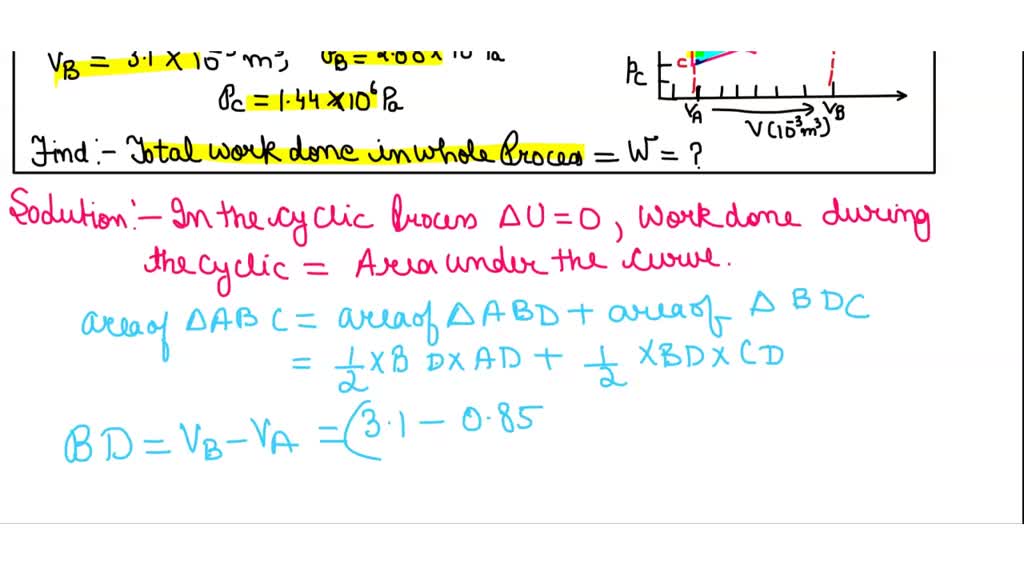 V_B = 3.1 × 10⁻³ m³,
P_C = 1.44 × 10⁶ Pa
Find :- Total work done in whole Process = W = ?
C
P_C
V_A
V_B
V(10⁻³m³)
Sodution :- In the cyclic Process ΔU = 0, Work done during
the cyclic = Area under the curve.
area of ΔABC = area of ΔABD + area of ΔBDC
= 1/2 × BD × AD + 1/2 × BD × CD
BD = V_B - V_A = (3.1 - 0.85